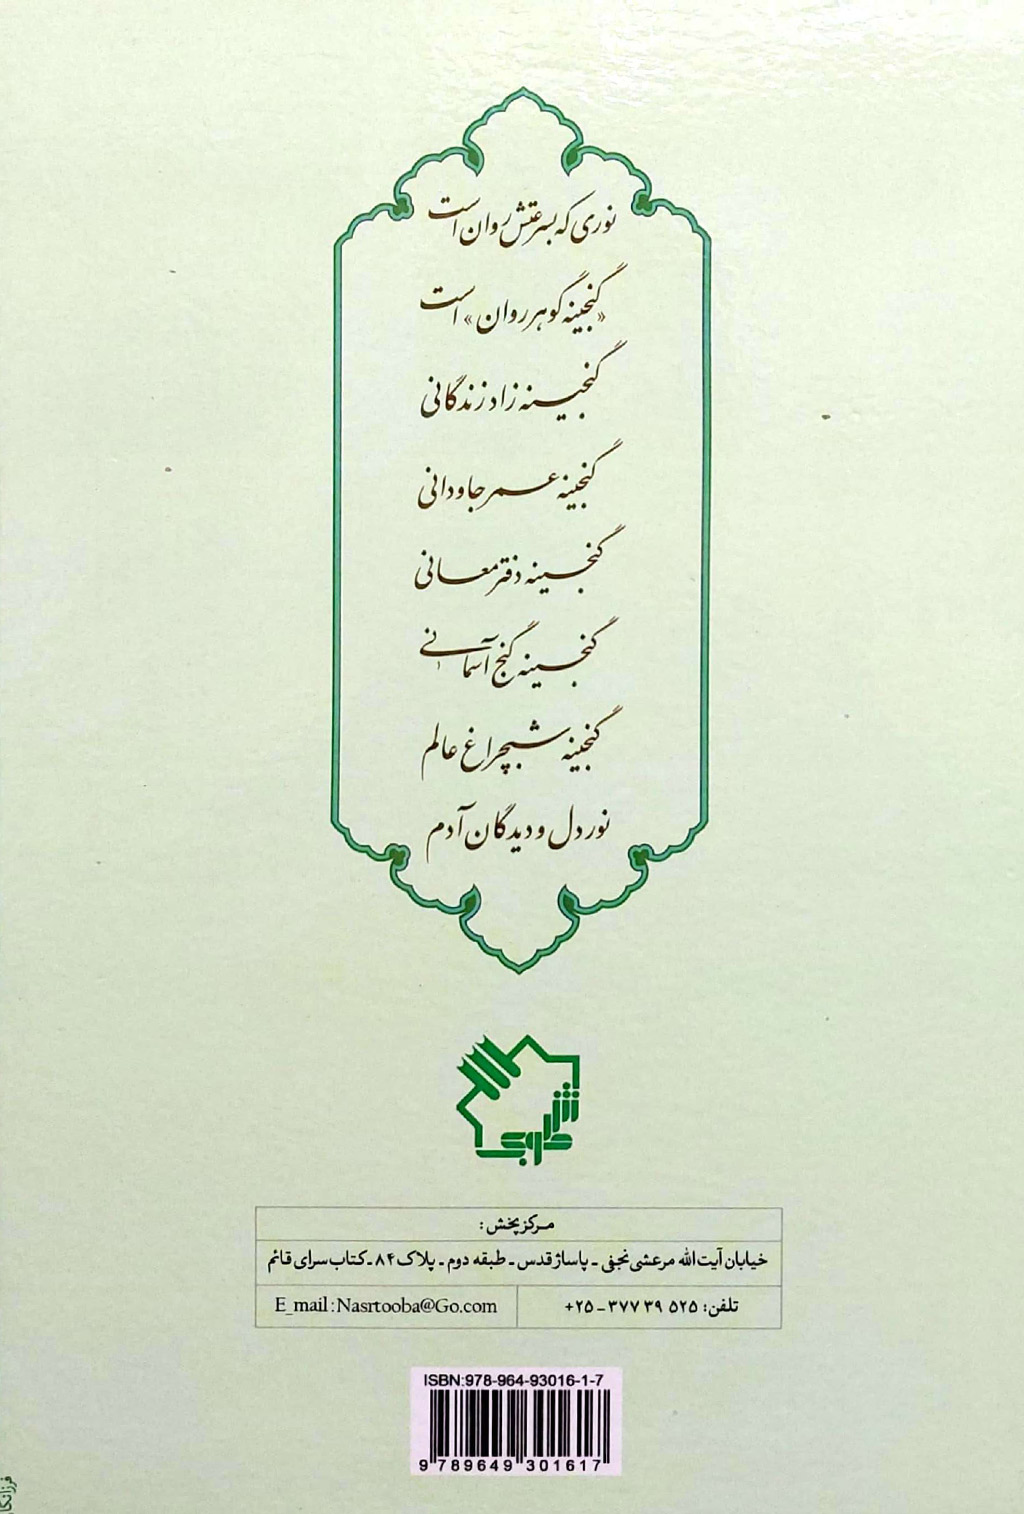 نوری که بسرعتش روان است
«گنجینه گوهر روان» است
گنجینه زاد زندگانی
گنجینه عمر جاودانی
گنجینه دفتر معانی
گنجینه گنج آسمانی
گنجینه شبچراغ عالم
نور دل و دیدگان آدم
نشر طوبی
مرکز پخش:
خیابان آیت‌الله مرعشی نجفی - پاساژ قدس - طبقه دوم - پلاک ۸۴ - کتاب سرای قائم
تلفن: ۵۲۵ ۳۹ ۳۷۷ - ۲۵+
E_mail: Nasrtooba@Go.com
ISBN:978-964-93016-1-7
9 789649 301617